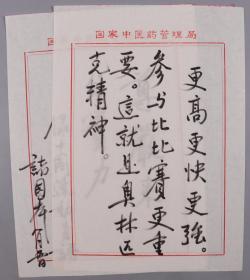 国家中医药管理局
更高更快更強。
参与比比賽更重
要。這就是奥林匹
克精神。
諸国本